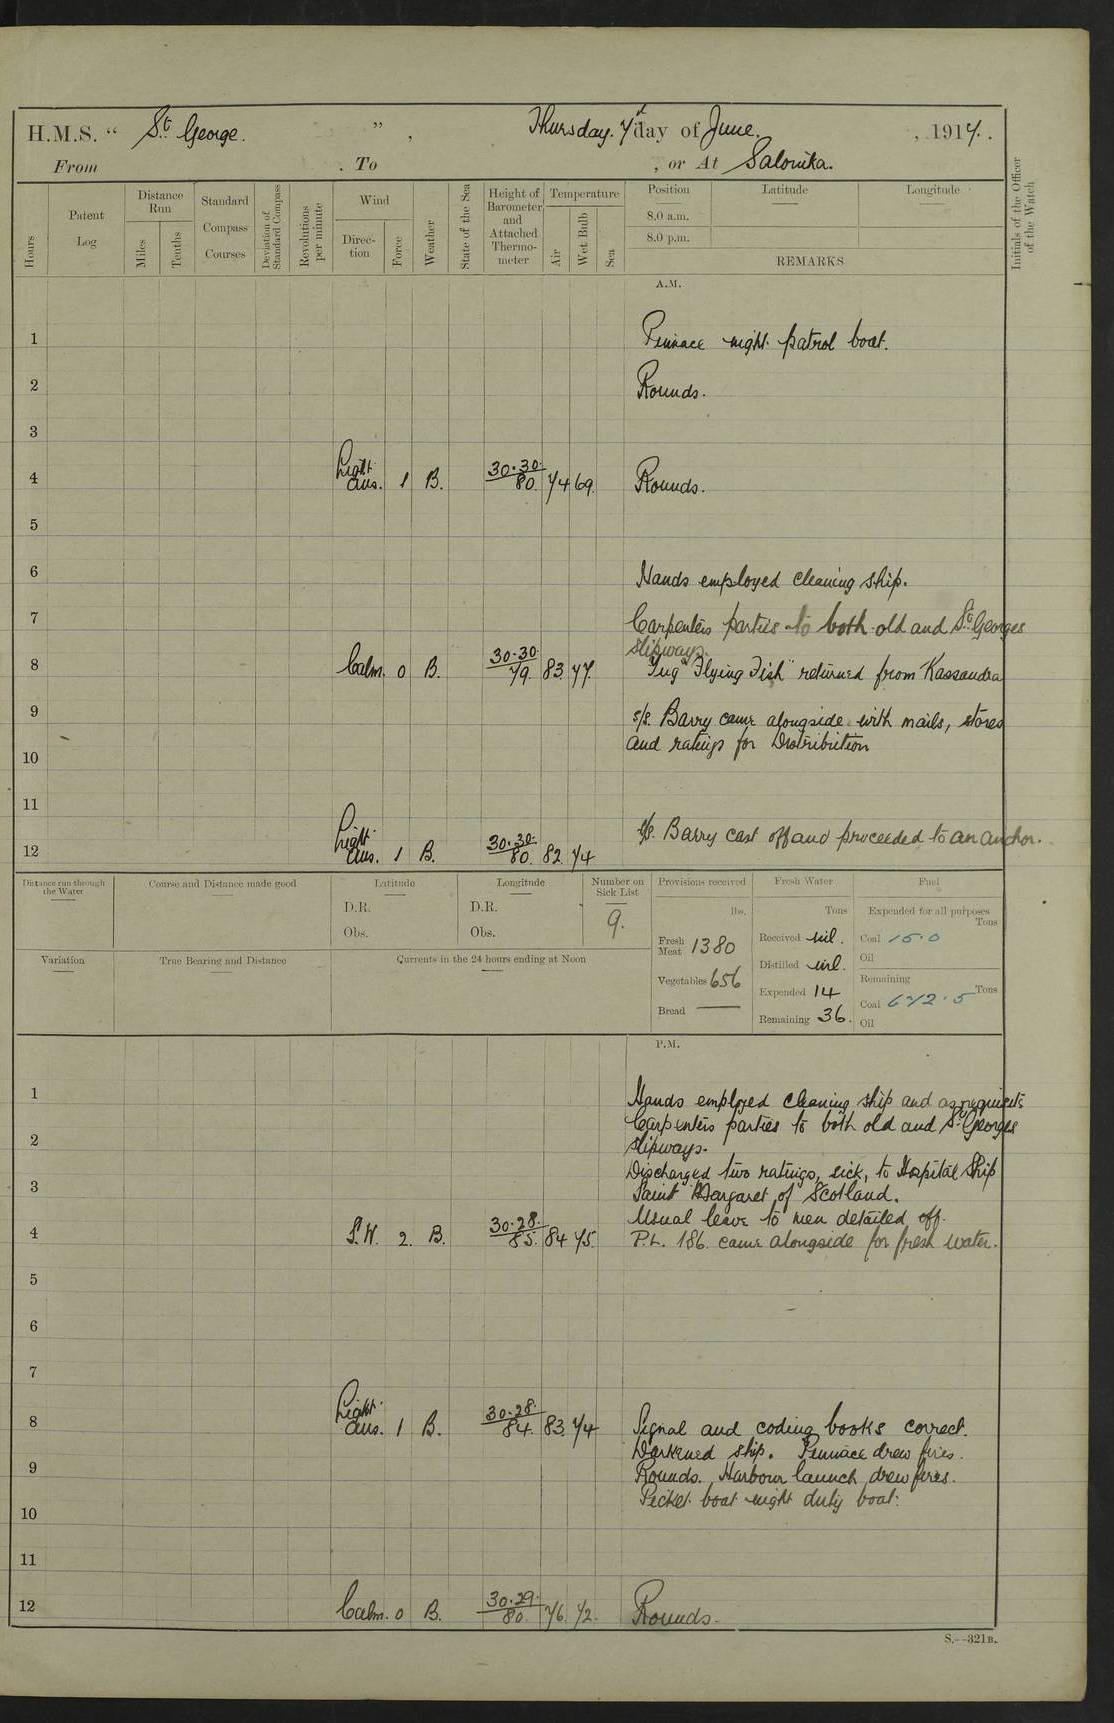 H.M.S. " St George. " , Thursday. 7th day of June. , 1917.
From . To , or At Salonika.
Hours
Patent Log
Distance Run
Miles
Tenths
Standard Compass Courses
Deviation of Standard Compass
Revolutions per minute
Wind
Direction
Force
Weather
State of the Sea
Height of Barometer and Attached Thermometer
Temperature
Air
Wet Bulb
Sea
Position Latitude Longitude
8.0 a.m.
8.0 p.m.
REMARKS
Initials of the Officer of the Watch
A.M.
1 Pinnace night patrol boat.
2 Rounds.
3
4 Light airs. 1 B. 30.30. 80. 74 69. Rounds.
5
6 Hands employed cleaning ship.
7 Carpenters parties to both old and St Georges
slipways.
8 Calm. 0 B. 30.30. 79. 83 77. Tug "Flying Fish" returned from Kassandra
9 s/s. Barry came alongside with mails, stores
and ratings for Distribution
10
11
s/s. Barry cast off and proceeded to an anchor.
12 Light airs. 1 B. 30.30. 80. 82 74
Distance run through the Water
Course and Distance made good
Latitude
D.R.
Obs.
Longitude
D.R.
Obs.
Number on Sick List
9.
Variation
True Bearing and Distance
Currents in the 24 hours ending at Noon
Provisions received
lbs.
Fresh Meat 1380
Vegetables 656
Bread —
Fresh Water
Tons
Received nil.
Distilled nil.
Expended 14
Remaining 36.
Fuel
Expended for all purposes
Tons
Coal 15.0
Oil
Remaining
Tons
Coal 672.5
Oil
P.M.
1 Hands employed cleaning ship and as requisite
Carpenters parties to both old and St Georges
2 slipways.
Discharged two ratings, sick, to Hospital Ship
3 Saint Margaret of Scotland.
Usual leave to men detailed off.
4 S.W. 2. B. 30.28. 85. 84 75. P.L. 186. came alongside for fresh water.
5
6
7
8 Light airs. 1 B. 30.28. 84. 83. 74 Signal and coding books correct.
Darkened ship. Pinnace drew fires.
9 Rounds. Harbour launch drew fires.
Picket boat night duty boat.
10
11
12 Calm. 0 B. 30.29. 80. 76. 72. Rounds.
S.—321B.